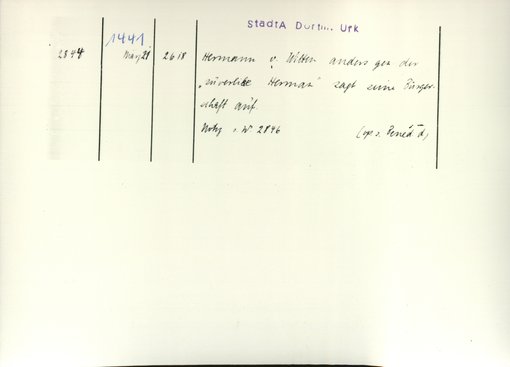 StadtA Dortm. Urk
1441
2844 März 21 2618 Hermann v. Witten anders gen. der
„süverlike Herman“ sagt seine Bürger-
schaft auf.
Notiz s. N° 2846 (ips. s. Bened. d)